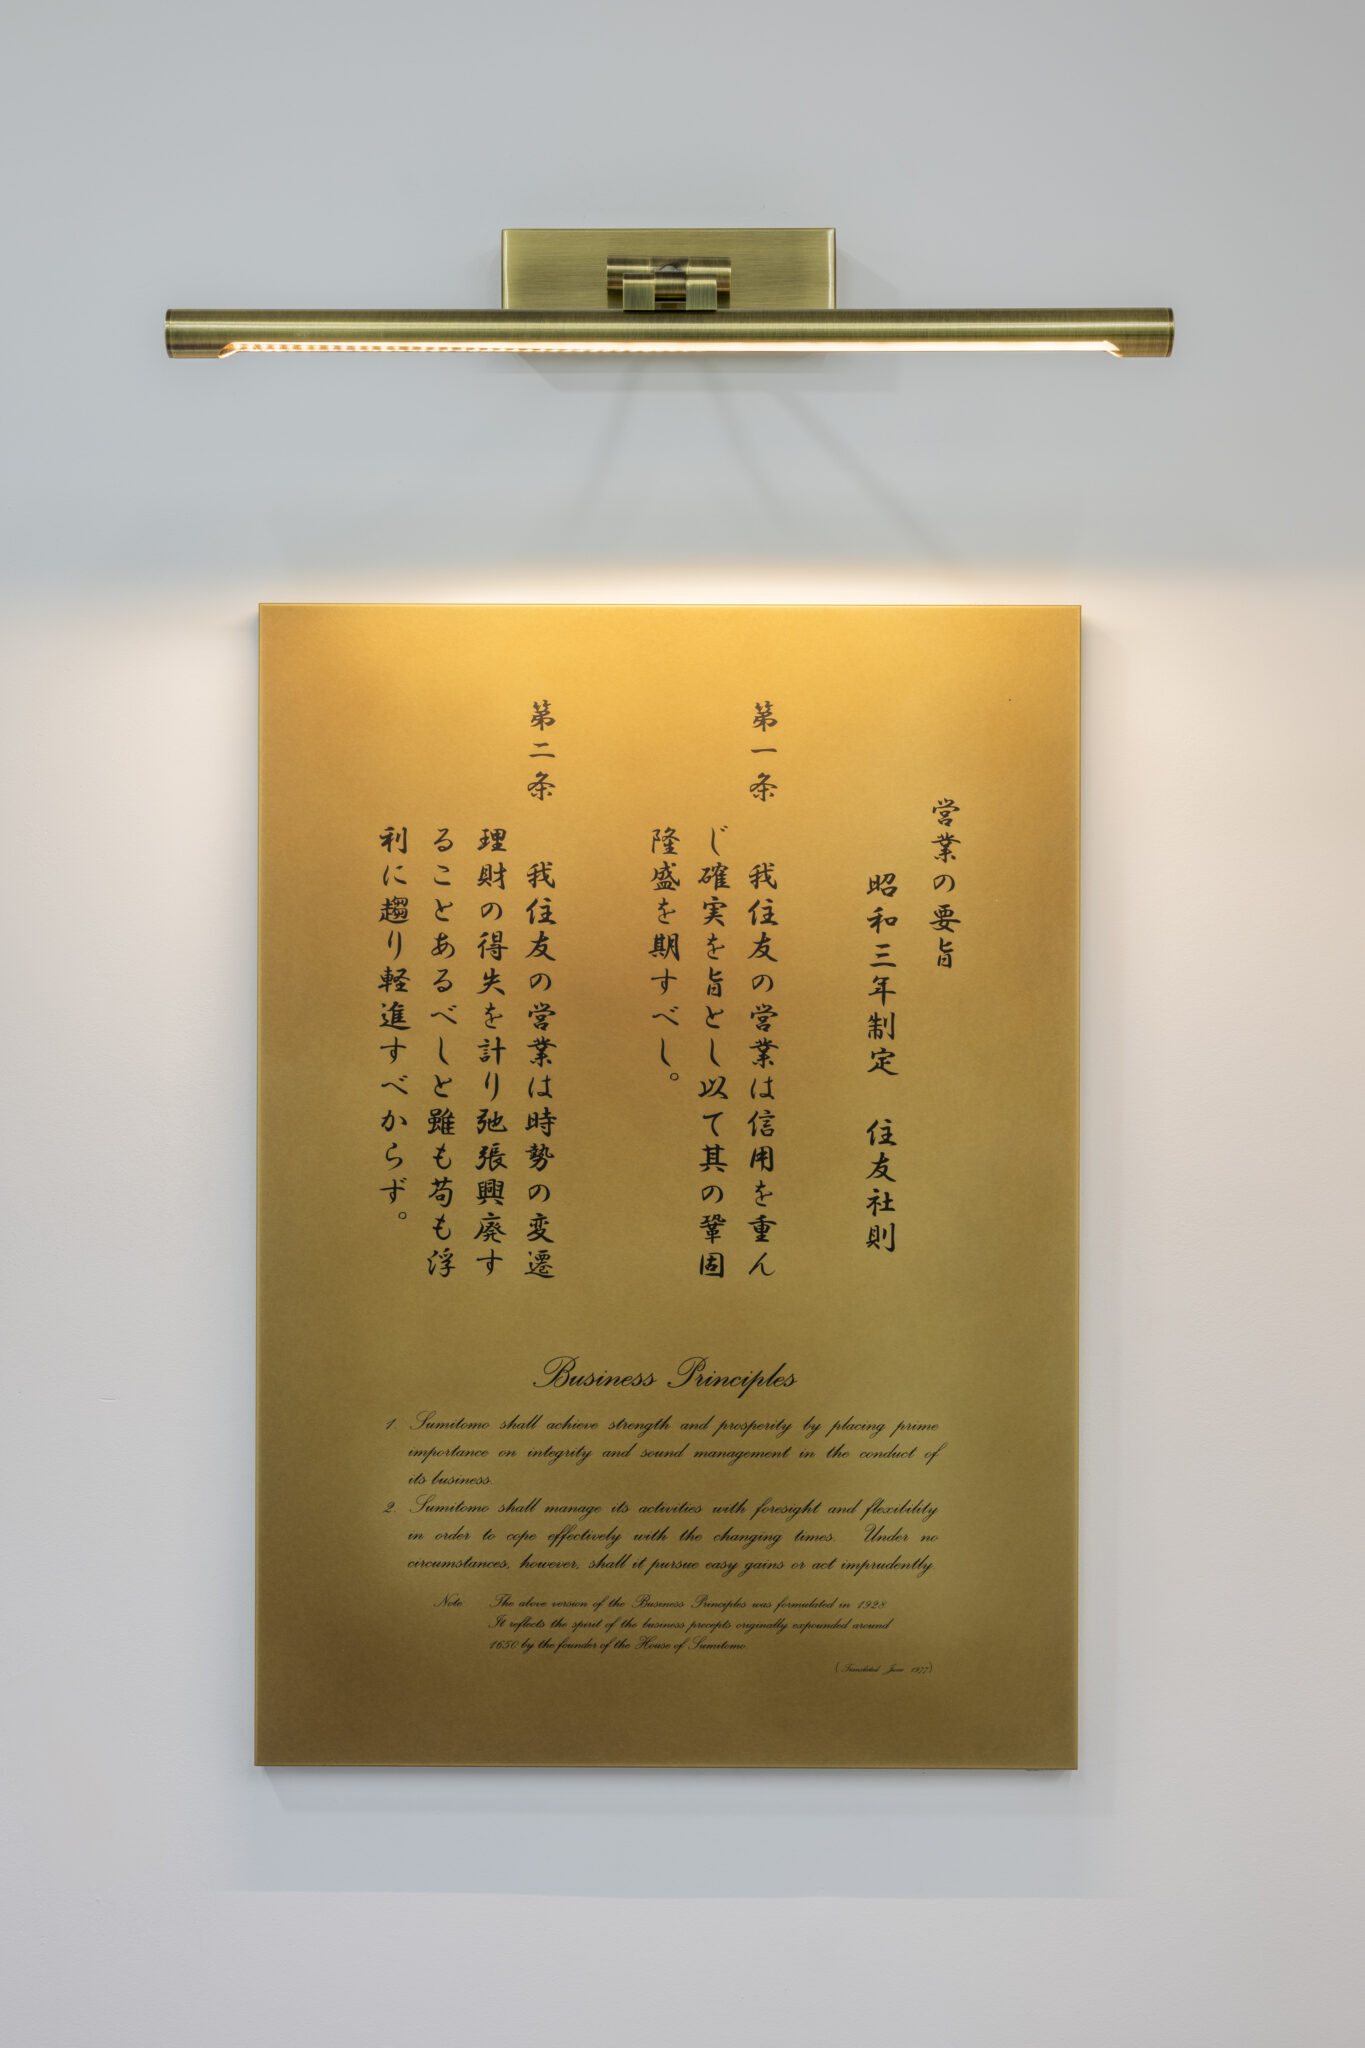 営業の要旨
昭和三年制定 住友社則
第一条 我住友の営業は信用を重ん
じ確実を旨とし以て其の鞏固
隆盛を期すべし。
第二条 我住友の営業は時勢の変遷
理財の得失を計り弛張興廃す
ることあるべしと雖も苟も浮
利に趨り軽進すべからず。
Business Principles
1. Sumitomo shall achieve strength and prosperity by placing prime
importance on integrity and sound management in the conduct of
its business.
2. Sumitomo shall manage its activities with foresight and flexibility
in order to cope effectively with the changing times. Under no
circumstances, however, shall it pursue easy gains or act imprudently.
Note The above version of the Business Principles was formulated in 1928
It reflects the spirit of the business precepts originally expounded around
1650 by the founder of the House of Sumitomo.
(Translated June 1977)